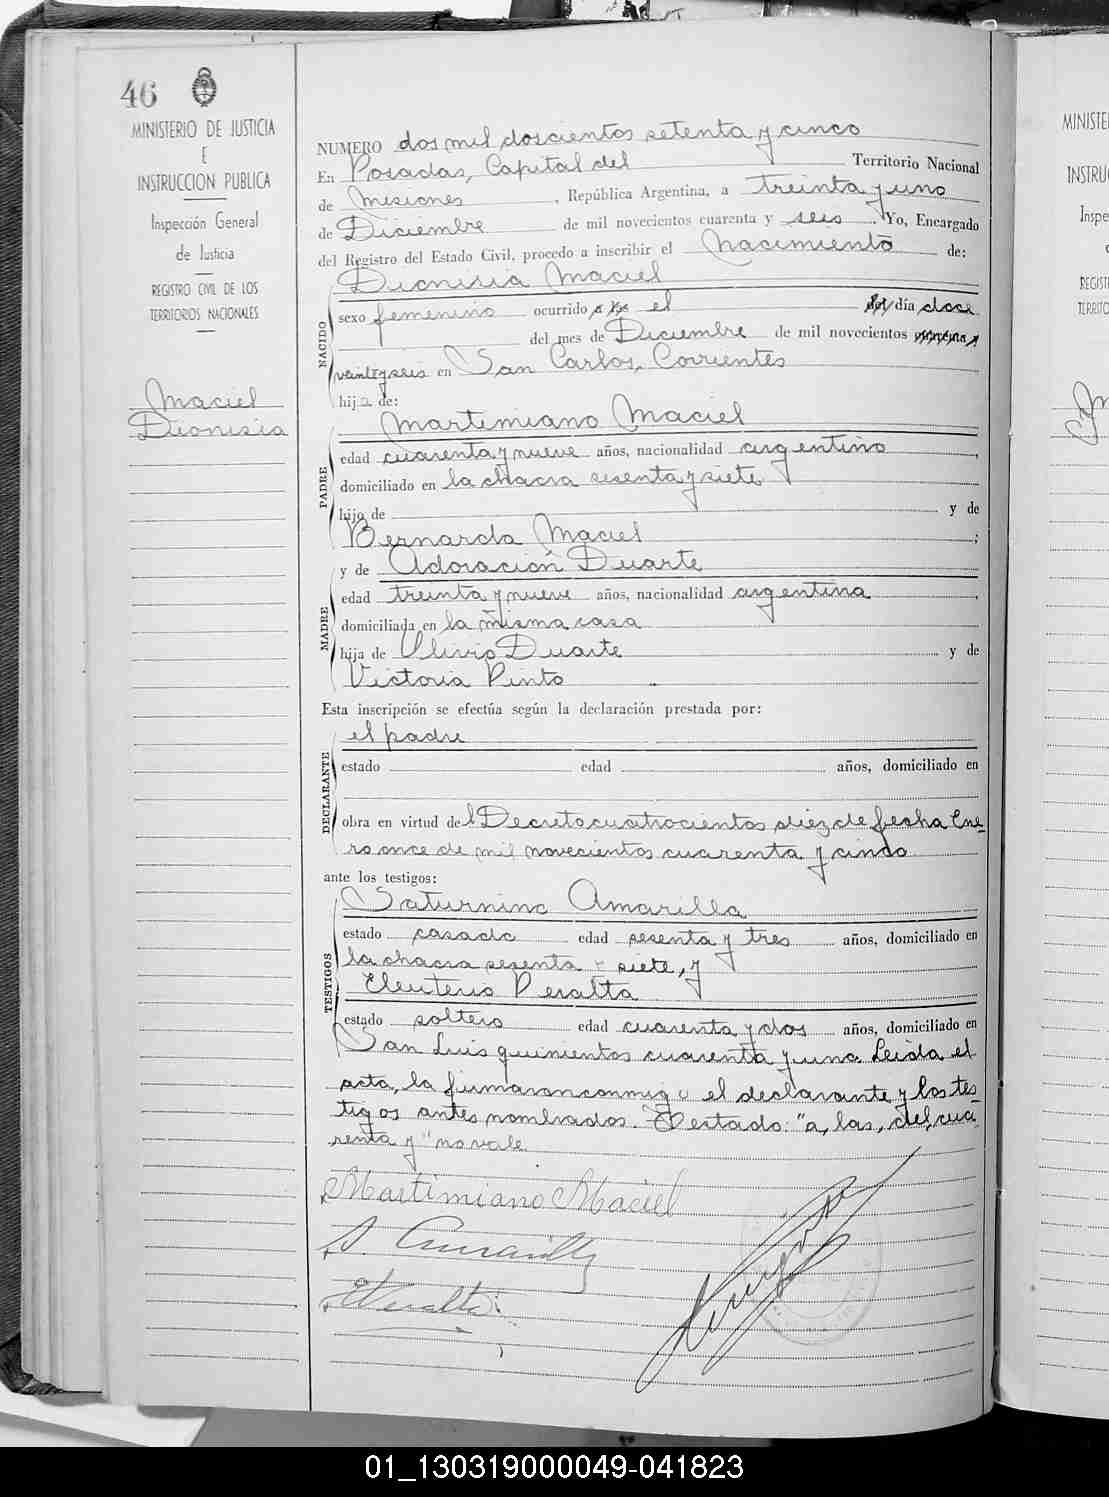 46
MINISTERIO DE JUSTICIA
E
INSTRUCCION PUBLICA
Inspección General
de Justicia
REGISTRO CIVIL DE LOS
TERRITORIOS NACIONALES
Maciel
Dionisia
NUMERO dos mil doscientos setenta y cinco
En Posadas, Capital del Territorio Nacional
de Misiones, República Argentina, a treinta y uno
de Diciembre de mil novecientos cuarenta y seis. Yo, Encargado
del Registro del Estado Civil, procedo a inscribir el nacimiento de:
Dionisia Maciel
NACIDO
sexo femenino ocurrido a las el del día doce
del mes de Diciembre de mil novecientos cuarenta y
veintiseis en San Carlos, Corrientes
hija de:
Martimiano Maciel
PADRE
edad cuarenta y nueve años, nacionalidad argentino,
domiciliado en la chacra sesenta y siete
hijo de y de
Bernarda Maciel;
y de Adoración Duarte
MADRE
edad treinta y nueve años, nacionalidad argentina,
domiciliada en la misma casa
hija de Olivio Duarte y de
Victoria Pinto
Esta inscripción se efectúa según la declaración prestada por:
el padre
DECLARANTE
estado edad años, domiciliado en
obra en virtud del Decreto cuatrocientos diez de fecha Ene-
ro once de mil novecientos cuarenta y cinco
ante los testigos:
Saturnino Amarilla
TESTIGOS
estado casado edad sesenta y tres años, domiciliado en
la chacra sesenta y siete, y
Eleuterio Peralta
estado soltero edad cuarenta y dos años, domiciliado en
San Luis quinientos cuarenta y uno. Leída el
acta, la firmaron conmigo el declarante y los tes-
tigos antes nombrados. Testado: "a, las, del, cua
renta y" no vale.
Martimiano Maciel
S. Amarilla
E Peralta
MINISTE
INSTRU
Inspe
REGIST
TERRITO
01_130319000049-041823